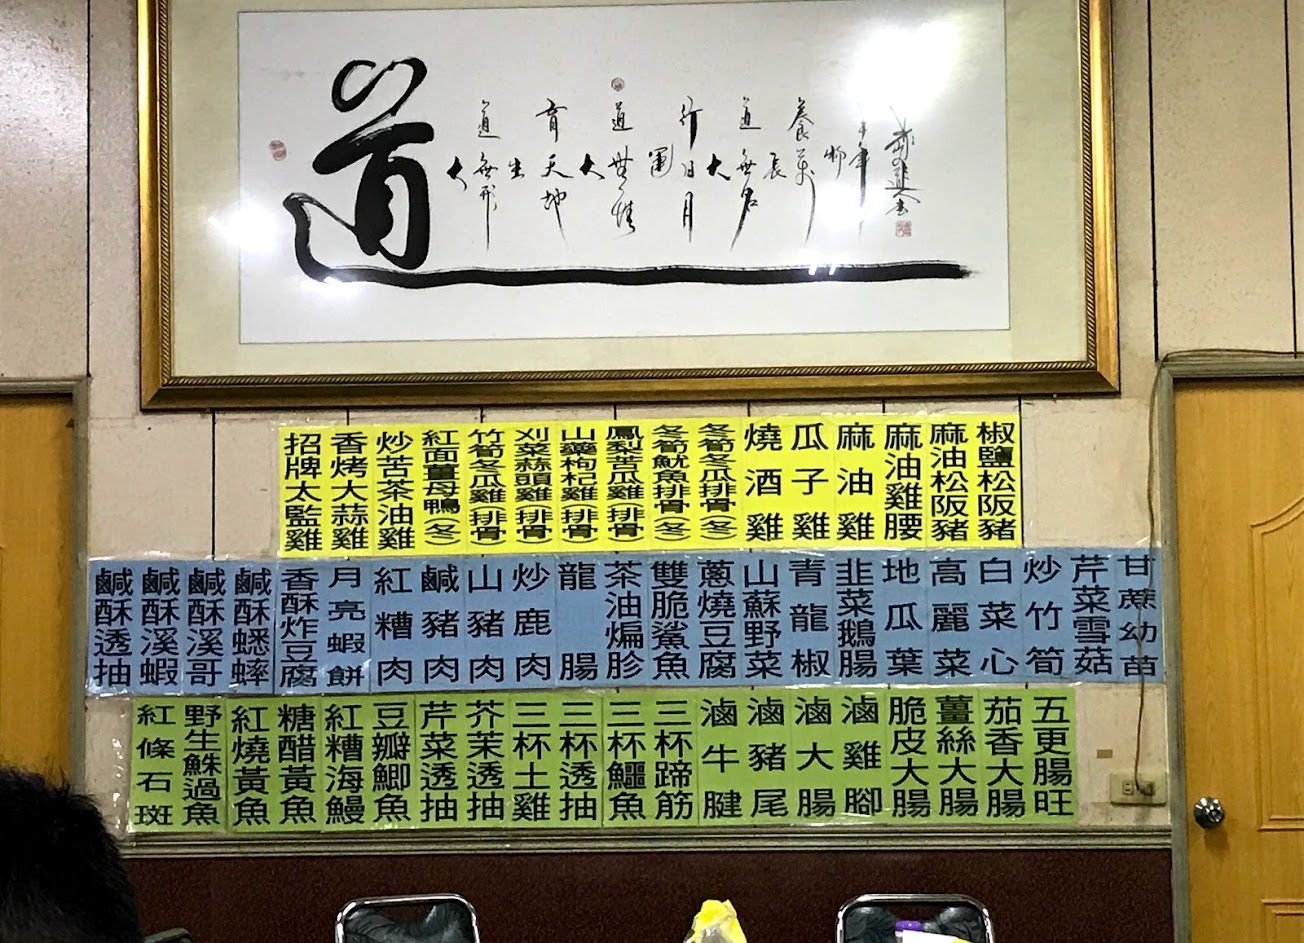 道
大道無形
生育天地
大道無情
運行日月
大道無名
長養萬物
招牌太監雞
香烤大蒜雞
炒苦茶油雞
紅面薑母鴨(冬)
竹筍冬瓜雞(排骨)
刈菜蒜頭雞(排骨)
山藥枸杞雞(排骨)
鳳梨苦瓜雞(排骨)
冬筍魷魚排骨(冬)
冬筍冬瓜排骨(冬)
燒酒雞
瓜子雞
麻油雞
麻油雞腰
麻油松阪豬
椒鹽松阪豬
鹹酥透抽
鹹酥溪蝦
鹹酥溪哥
鹹酥蟋蟀
香酥炸豆腐
月亮蝦餅
紅糟肉
鹹豬肉
山豬肉
炒鹿肉
龍腸
茶油煸胗
雙脆鯊魚
蔥燒豆腐
山蘇野菜
青龍椒
韭菜鵝腸
地瓜葉
高麗菜
白菜心
炒竹筍
芹菜雪菇
甘蔗幼苗
紅條石斑
野生鮢過魚
紅燒黃魚
糖醋黃魚
紅糟海鰻
豆瓣鯽魚
芹菜透抽
芥茉透抽
三杯土雞
三杯透抽
三杯鱷魚
三杯蹄筋
滷牛腱
滷豬尾
滷大腸
滷雞腳
脆皮大腸
薑絲大腸
茄香大腸
五更腸旺